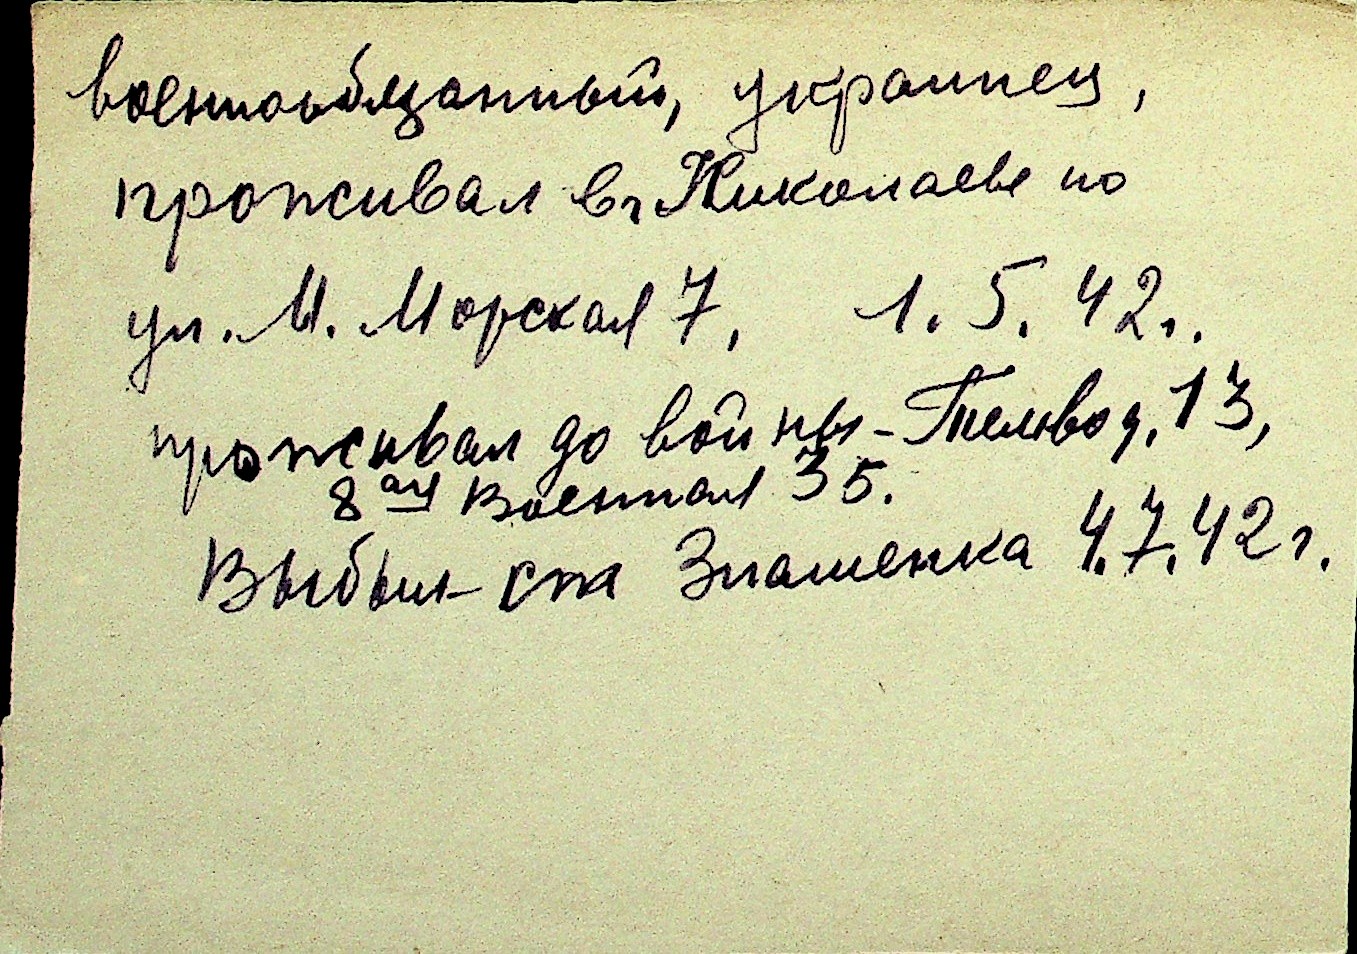 военнообязанный, украинец,
проживал в г. Николаеве по
ул. М. Морская 7, 1. 5. 42 г.
проживал до войны - 13,
8 ая Военная 35.
Выбыл - ст Знаменка 4.7.42 г.